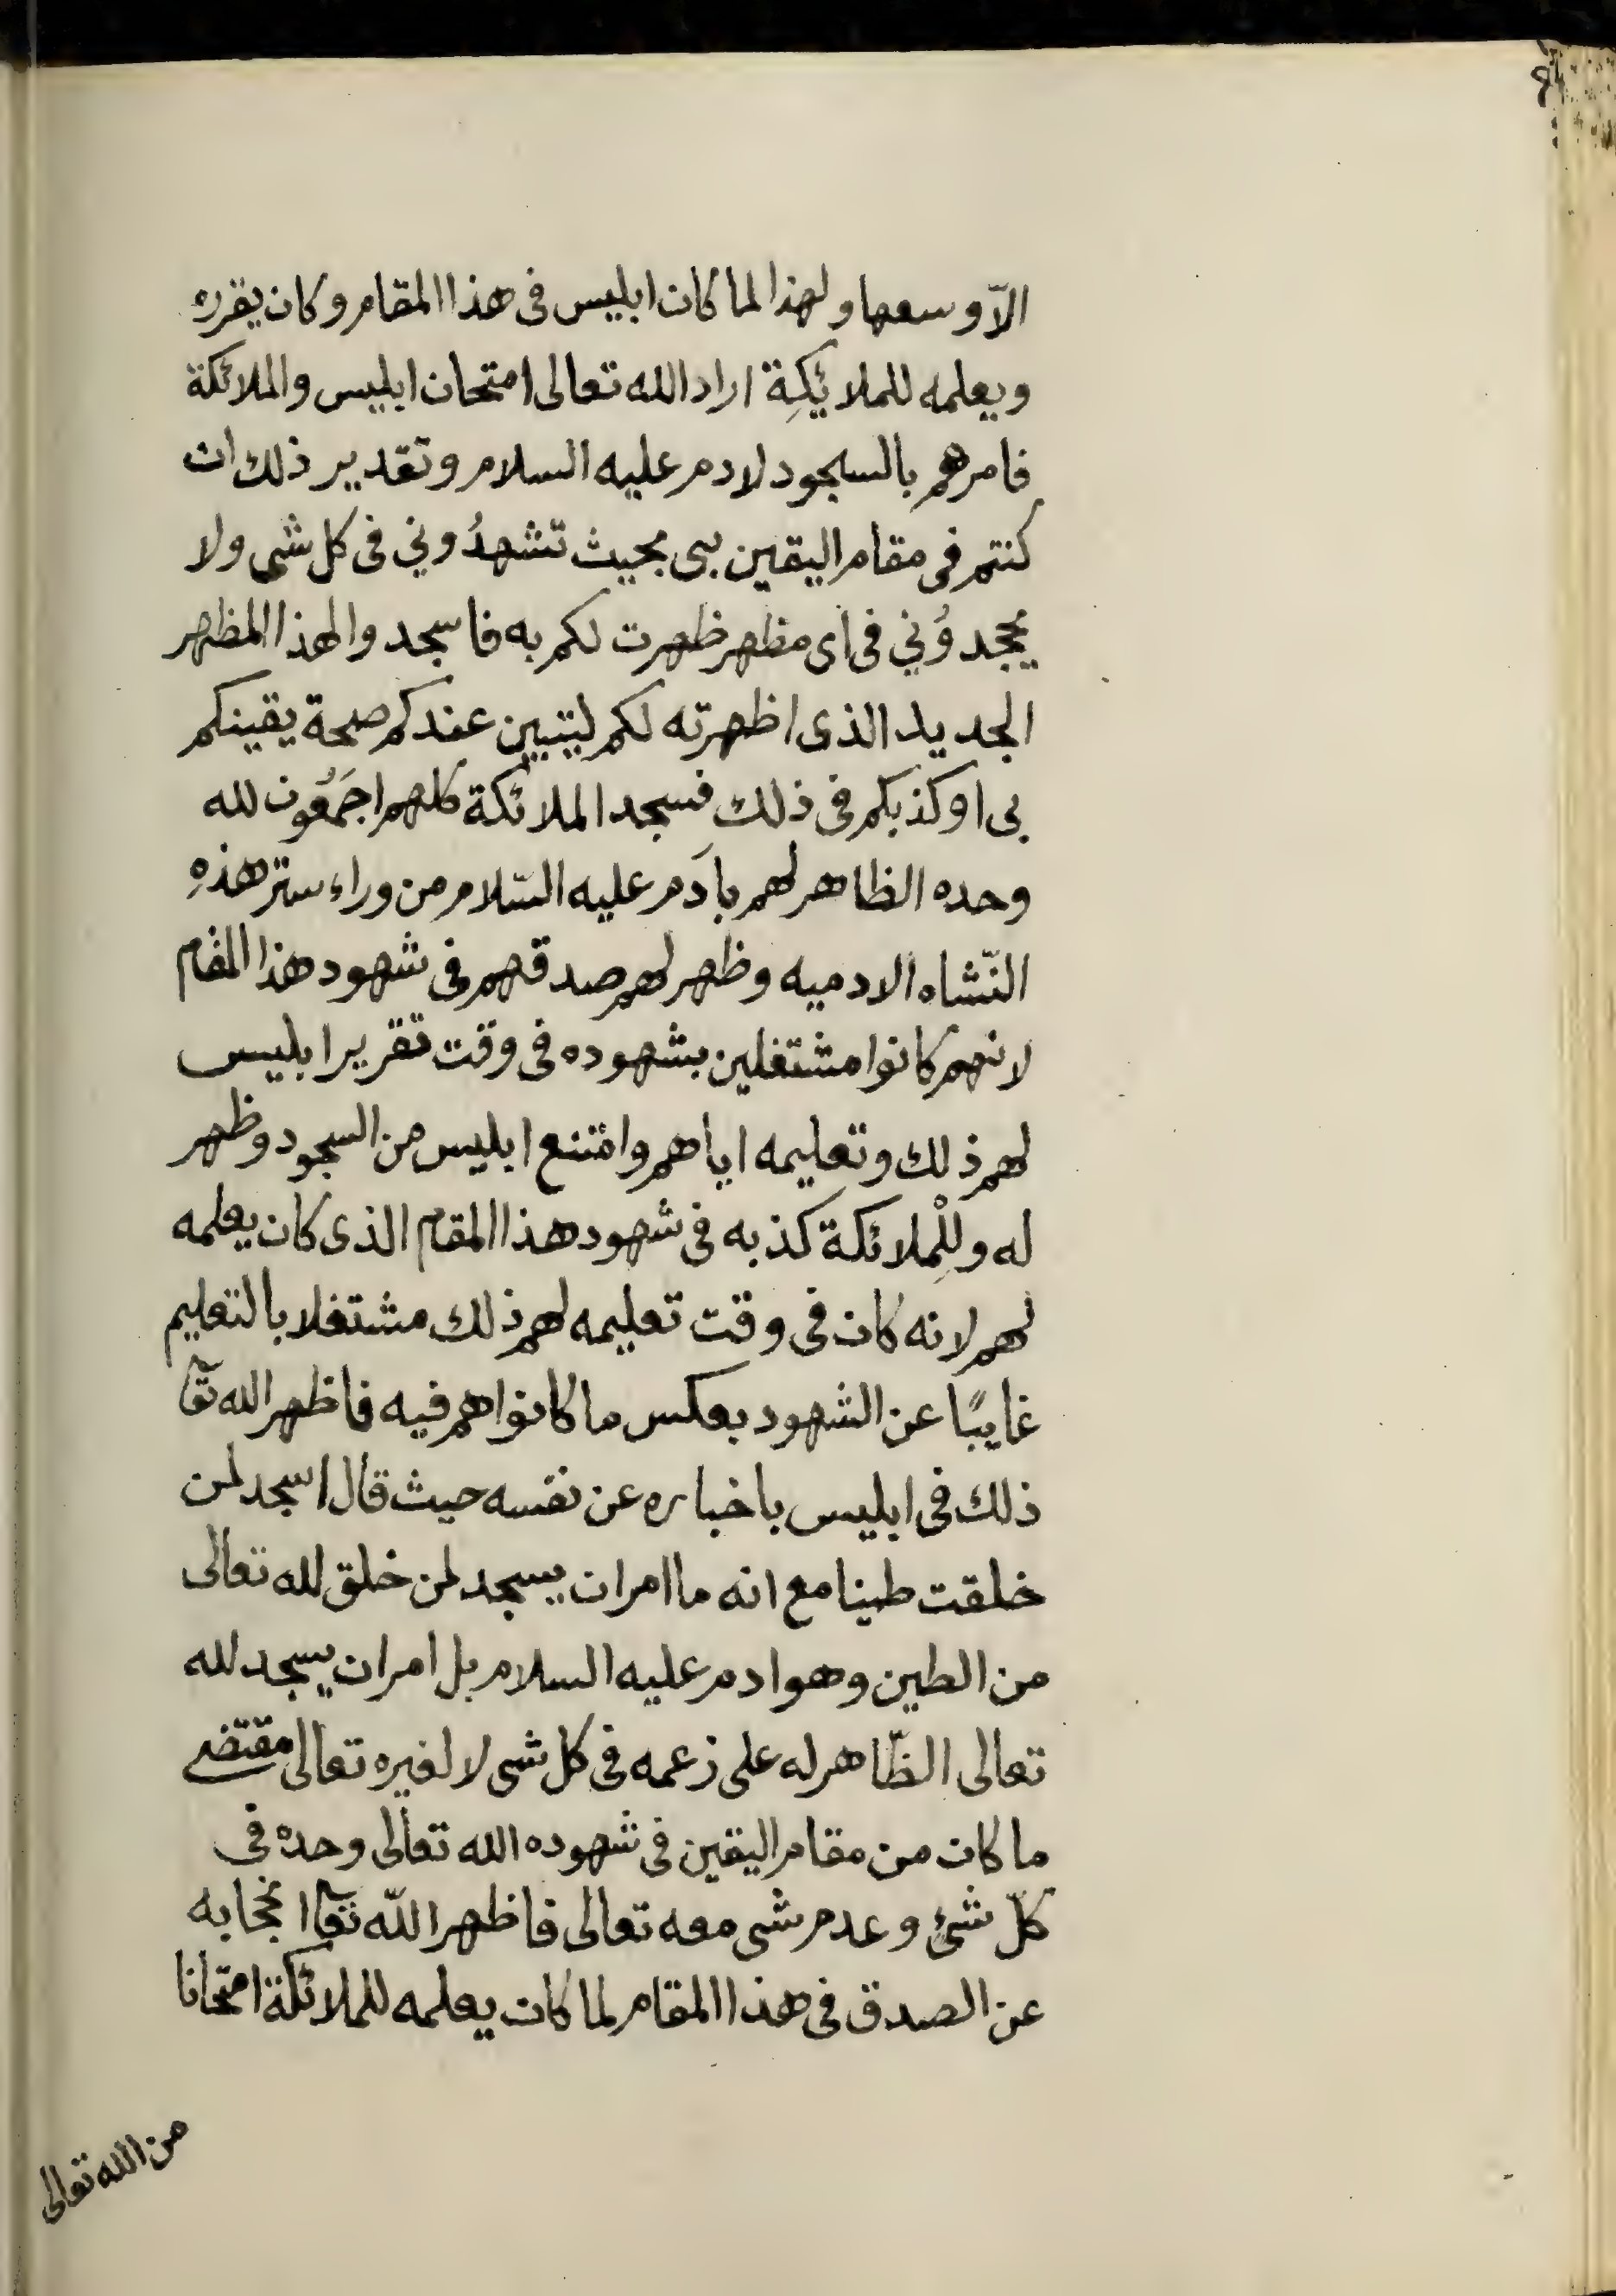 الّا وسعها ولهذا لما كان ابليس فى هذا المقام وكان يقرره
ويعلمه للملائِكِة اراد الله تعالى امتحان ابليس والملائكة
فامرهم بِالسجود لادم عليه السلام وتقدير ذلك ان
كنتم فى مقام اليقين بى بحيث تشهدُوني فى كل شى ولا
تجحدوُني فى اى مظهر ظهرت لكم به فاسجدوا لهذا المظهر
الجديد الذى اظهرته لكم ليتبين عندكم صحة يقينكم
بى او كذبكم فى ذلك فسجد الملائكة كلهم اجمَعُون لله
وحده الظاهر لهم بادَم عليه السّلام من وراء ستر هذهِ
النّشاه الادميه وظهر لهم صدقهم فى شهود هذا المقام
لانهم كانوا مشتغلين بشهوده فى وقت تقرير ابليس
لهم ذلك وتعليمه اياهم وامتنع ابليس من السجود وظهر
له وللْملائِكة كذبه فى شهود هذا المقام الذى كان يعلمه
لهم لانه كان فى وقت تعليمه لهم ذلك مشتغلا بالتعليم
غايبًا عن الشهود بعكس ما كانوا هم فيه فاظهر الله تعآ
ذلك فى ابليس باخباره عن نفسه حيث قال اسجد لمن
خلقت طينا مع انه ما امر ان يسجد لمن خلق لله تعالى
من الطين وهو ادم عليه السلام بل امر ان يسجد لله
تعالى الظّاهر له على زعمه فى كل شى لا لغيره تعالى مقتضى
ما كان من مقام اليقين فى شهوده الله تعالى وحده فى
كلّ شئ وعدم شى معه تعالى فاظهر اللّه تعآ انحجابه
عن الصدق فى هذا المقام لما كان يعلمه للملائكة امتحانا
من الله تعالى